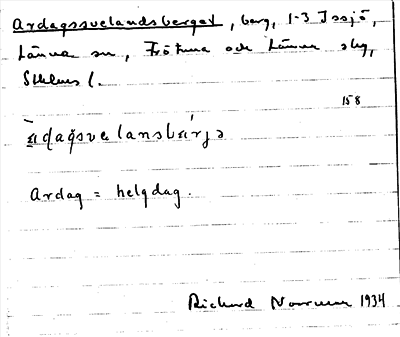 Ardagssvelandsberget, berg, 1-3 Issjö,
Länna sn, Frötuna och Länna slg,
Sthlms l.
158
ādagsvelansbærjə
Ardag = helgdag.
Richard Norrman 1934